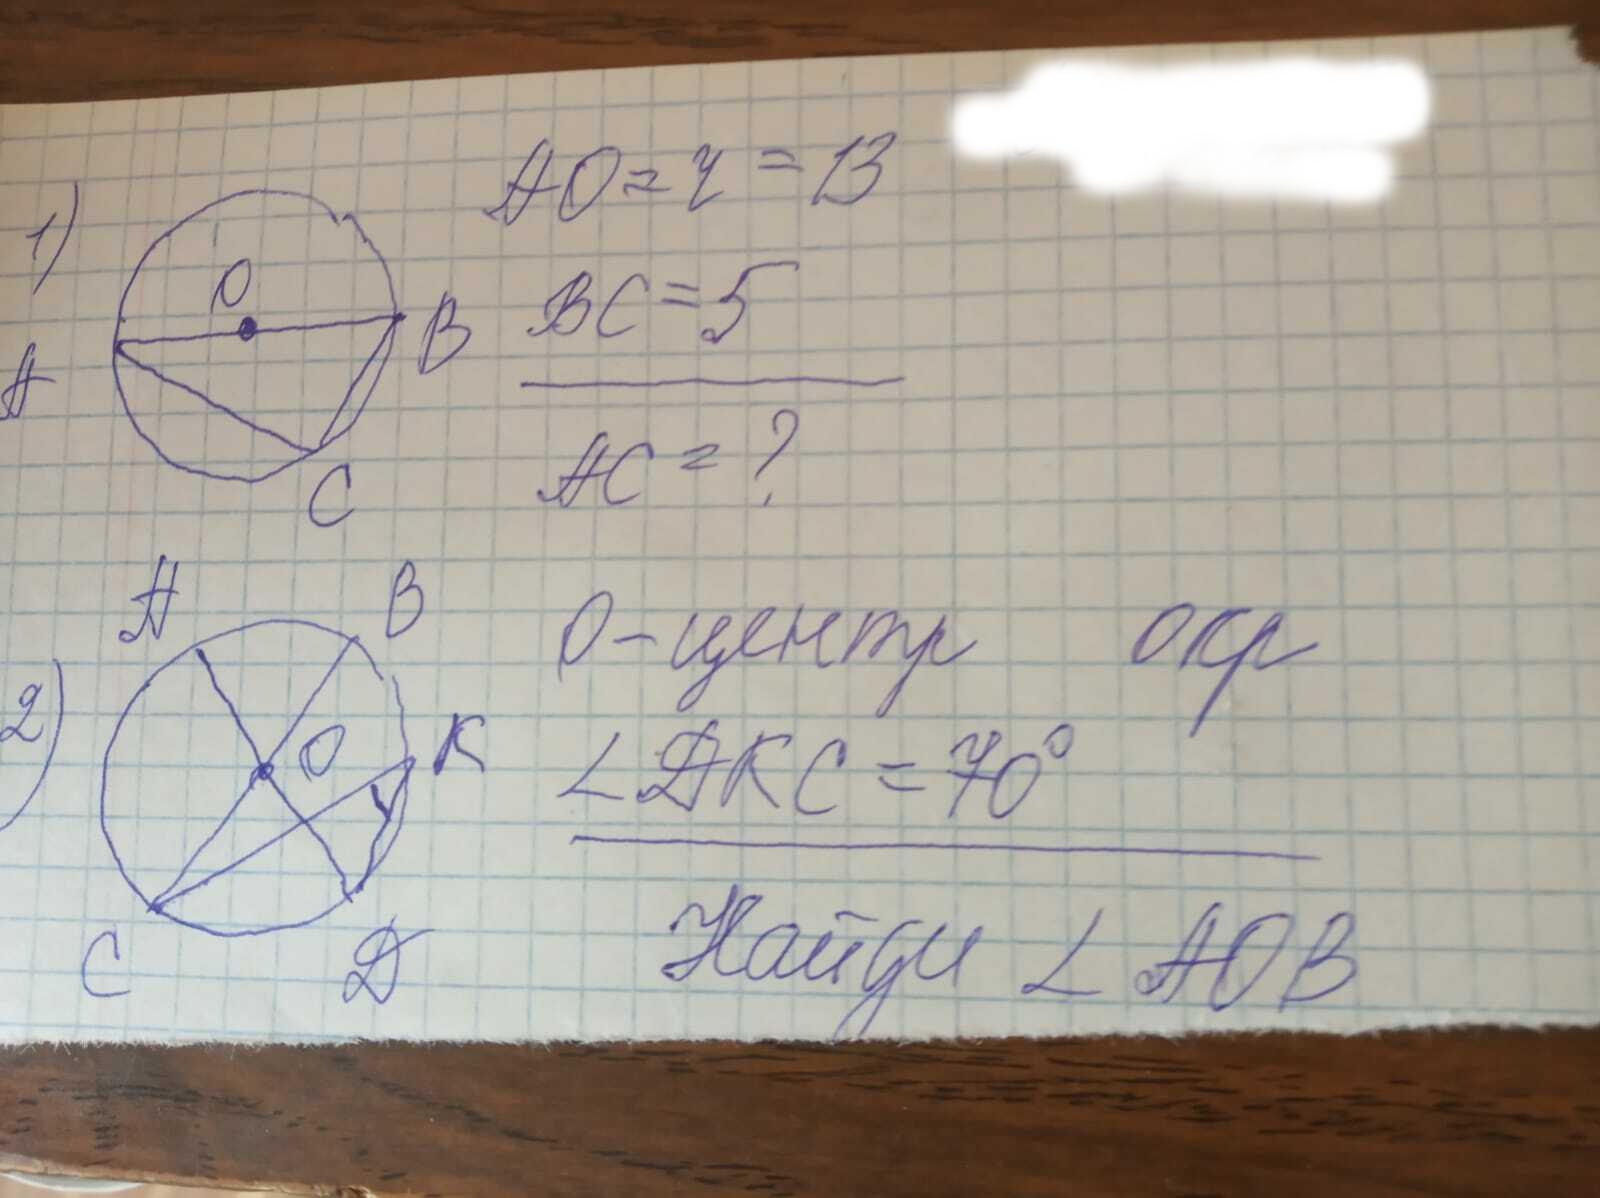 1)
O
A
B
C
AO=r=13
BC=5
AC=?
2)
A
B
O
K
C
D
O-центр окр
∠DKC=70°
Найди ∠AOB